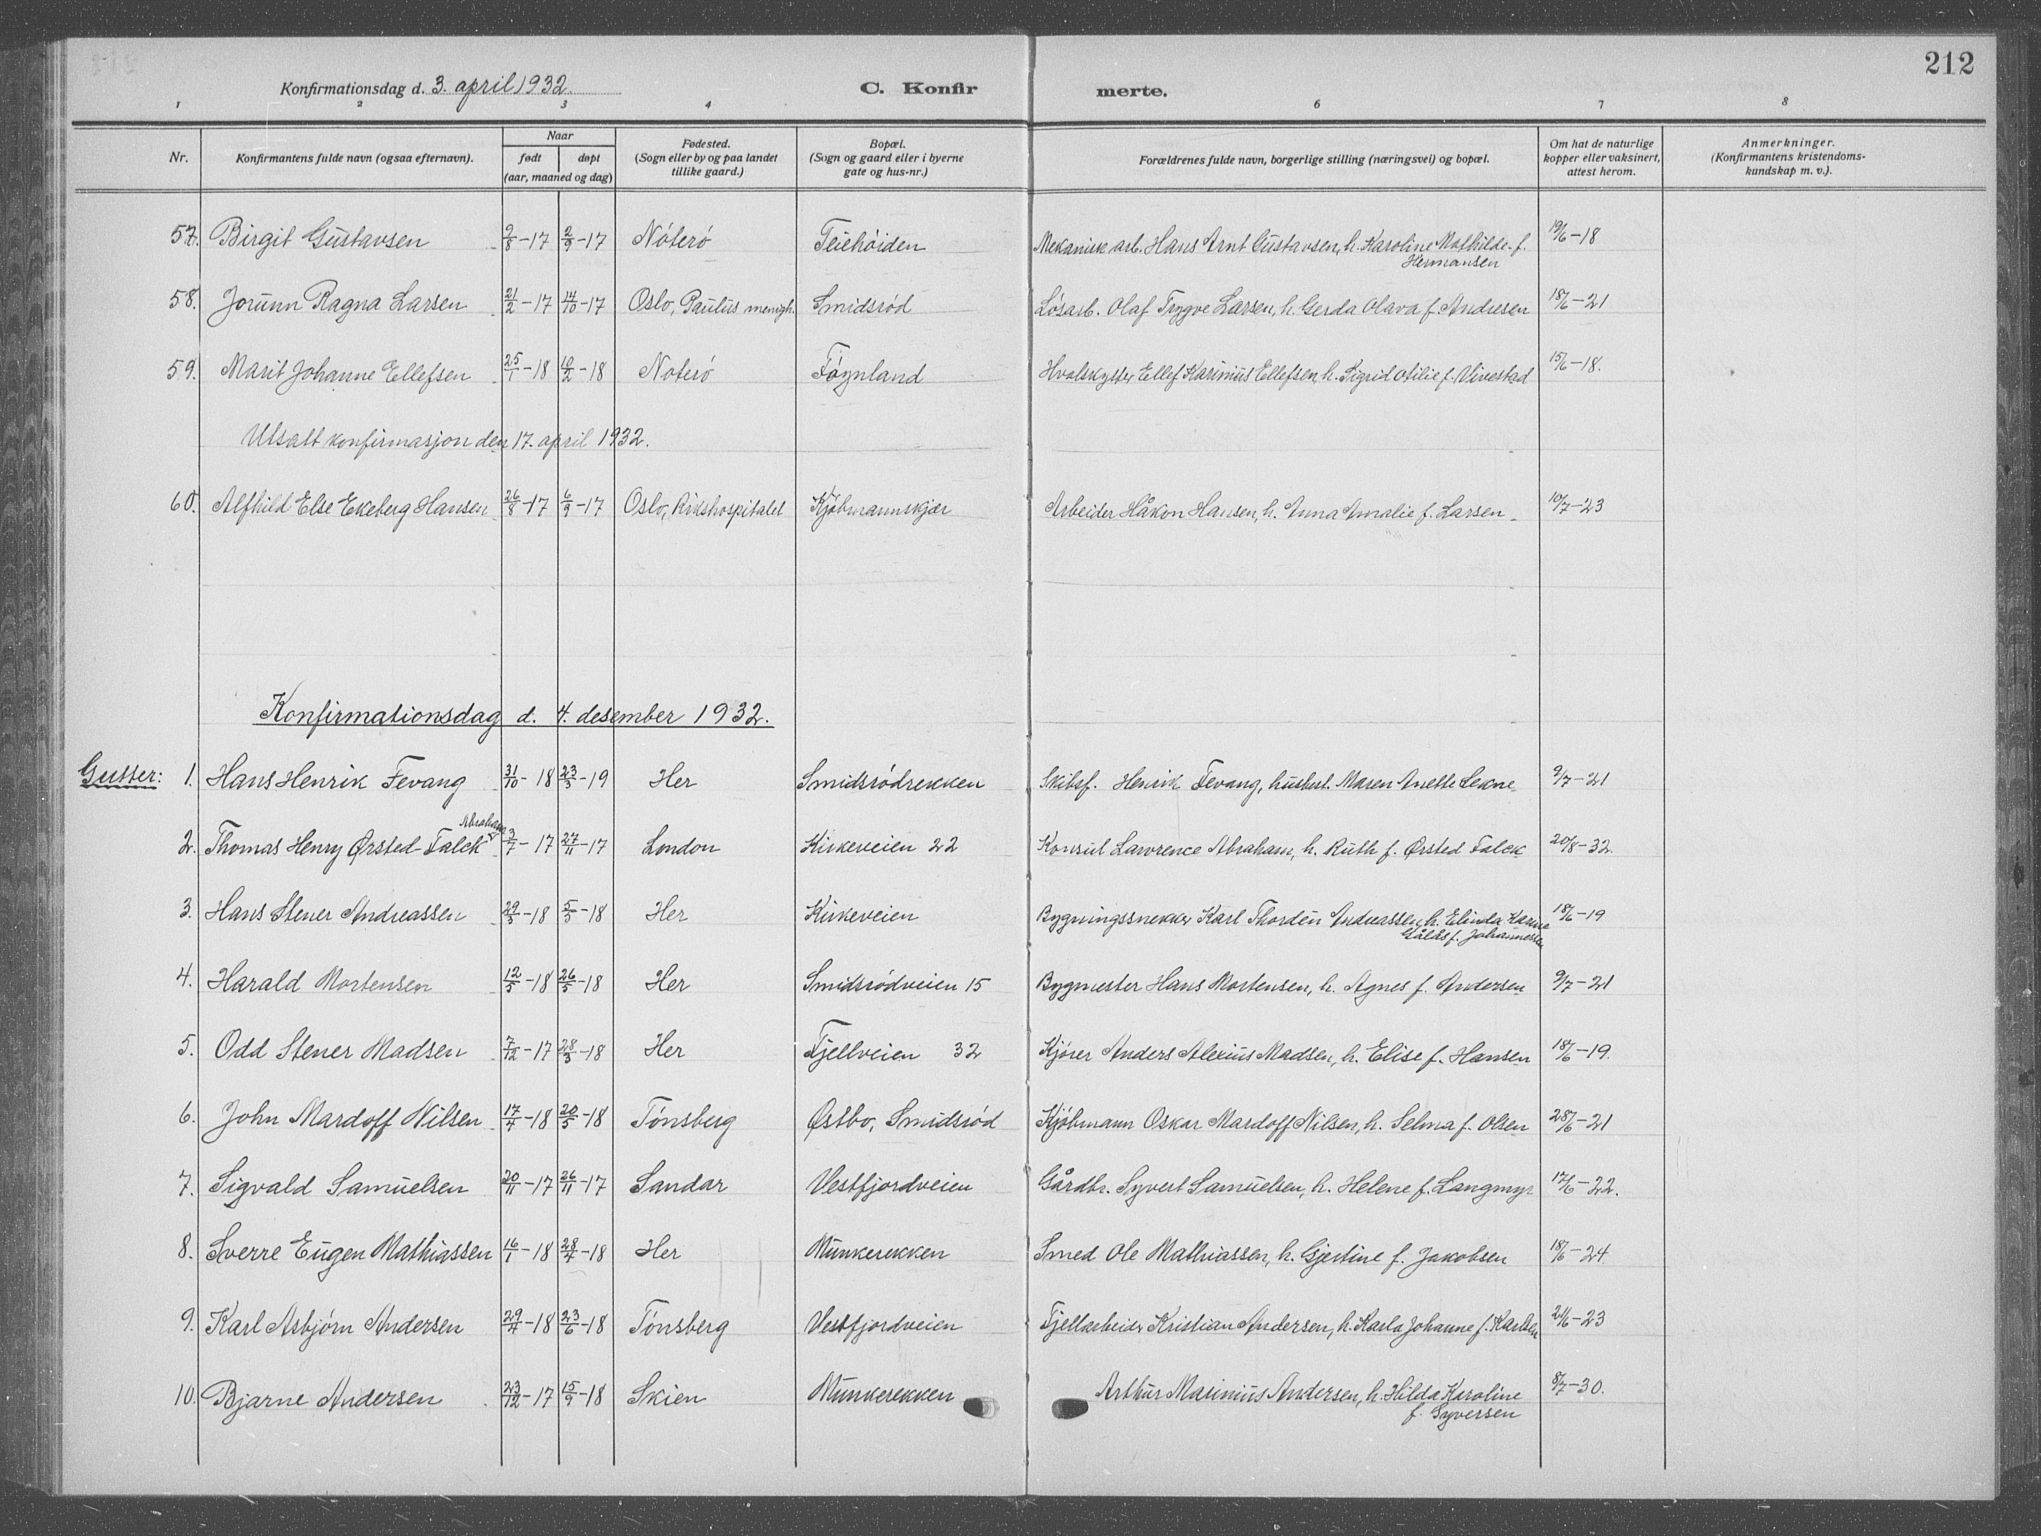 212
Konfirmationsdag d. 3. april 1932. C. Konfirmerte.
1 2 3 4 6 7 8
Nr. Konfirmantens fulde navn (ogsaa efternavn). Naar født døpt (aar, maaned og dag) Fødested. (Sogn eller by og paa landet tillike gaard.) Bopæl. (Sogn og gaard eller i byerne gate og hus-nr.) Forældrenes fulde navn, borgerlige stilling (næringsvei) og bopæl. Om hat de naturlige kopper eller vaksinert, attest herom. Anmerkninger. (Konfirmantens kristendoms-kundskap m. v.).
57. Birgit Gustavsen 9/8-17 2/9-17 Nöterö Teiehöiden Mekanisk arb. Hans Arnt Gustavsen, h. Karoline Mathilde f. Hermansen 19/6-18
58. Jorunn Ragna Larsen 21/2-17 14/10-17 Oslo, Paulus menigh. Smidsröd Løsarb. Olaf Trygve Larsen, h. Gerda Olava f. Andresen 18/6-21
59. Marit Johanne Ellefsen 25/1-18 10/2-18 Noterö Föynland Hvalskytter Ellef Karinius Ellefsen, h. Sigrid Otilie f. Vivestad 15/6-18.
Utsatt konfirmasjon den 17. april 1932.
60. Alfhild Else Ekeberg Hansen 26/8-17 6/9-17 Oslo, Rikshospitalet Kjöbmannskjær Arbeider Håkon Hansen, h. Anna Amalie f. Larsen 10/7-23
Konfirmationsdag d. 4. desember 1932.
Gutter: 1. Hans Henrik Fevang 31/10-18 23/3-19 Her Smidsrödrekken Skibsf. Henrik Fevang, hustert. Maren Anette Lekne 9/7-21
2. Thomas Henry Ørsted-Falck Abraham 3/7-17 27/11-17 London Kirkeveien 22 Konsul Lawrence Abraham, h. Ruth f. Ørsted Falck 20/8-32.
3. Hans Stener Andreassen 29/3-18 5/5-18 Her Kirkeveien Bygningssnekker Karl Thordin Andreassen, h. Elinda f. Johannesen 18/6-19
4. Harald Mortensen 12/5-18 26/5-18 Her Smidsrödveien 15 Bygmester Hans Mortensen, h. Agnes f. Andersen 9/7-21
5. Odd Stener Madsen 7/12-17 28/3-18 Her Fjellveien 32 Kjörer Anders Alexius Madsen, h. Elise f. Hansen 18/6-19.
6. John Mardoff Nilsen 17/4-18 20/5-18 Tönsberg Østbo, Smidsröd Kjöbmann Oskar Mardoff Nilsen, h. Selma f. Olsen 28/6-21
7. Sigvald Samuelsen 20/11-17 26/11-17 Sandar Vestfjordveien Gårdbr. Syvert Samuelsen, h. Helene f. Langmyr 17/6-22.
8. Sverre Eugen Mathiassen 16/1-18 28/4-18 Her Munkerekken Smed Ole Mathiassen, h. Gjertine f. Jakobsen 18/6-24
9. Karl Asbjørn Andersen 29/4-18 23/6-18 Tönsberg Vestfjordveien Fjellarbeider Kristian Andersen, h. Karla Johanne f. Karlsen 21/6-23
10. Bjarne Andersen 23/12-17 15/9-18 Skien Munkerekken Arthur Maximius Andersen, h. Hilda Karoline f. Syversen 8/7-30.